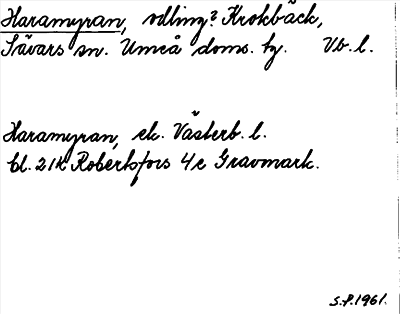 Haramyran, odling? Krokbäck,
Sävars sn. Umeå doms. hg. Vb. l.
Haramyran, ek. Västerb. l.
bl. 21K Robertsfors 4e Gravmark.
S.P. 1961.